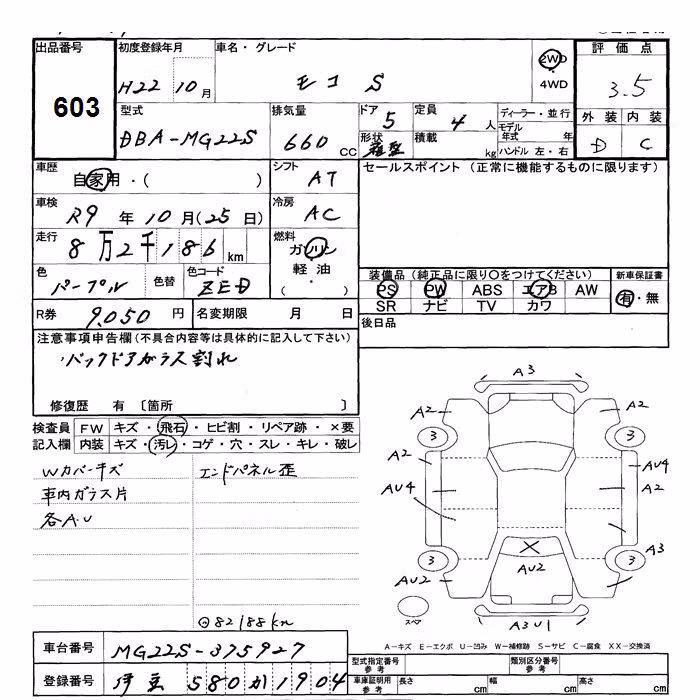 出品番号 初度登録年月 車名・グレード 評価点
603 H22 10月 モコ S 2WD 3.5
4WD
型式 排気量 ドア 定員 ディーラー・並行 外装 内装
DBA-MG22S 660 CC 5 4人 モデル年式 年 D C
形状 箱型 積載 kg ハンドル 左・右
車歴 自家用・( ) シフト AT セールスポイント (正常に機能するものに限ります)
車検 R9年10月(25日) 冷房 AC
走行 8万2千186km 燃料 ガソリン
軽油
( )
色 パープル 色替 色コード ZED 装備品(純正品に限り○をつけてください) 新車保証書
PS PW ABS エアB AW 有・無
SR ナビ TV カワ
R券 9,050円 名変期限 月 日 後日品
注意事項申告欄(不具合内容等は具体的に記入して下さい)
バックドアガラス割れ
修復歴 有 〔箇所 〕
検査員 FW キズ・飛石・ヒビ割・リペア跡・×要
記入欄 内装 キズ・汚レ・コゲ・穴・スレ・キレ・破レ
Wカバーキズ エンドパネル歪
車内ガラス片
各A.U
82188km
A3
A2 A2
3 3
A2 AU4
AU4 A2
3 3 A3
AU2 AU2
スペア
A3U1
A-キズ E-エクボ U-凹み W-補修跡 S-サビ C-腐食 XX-交換済
車台番号 MG22S-375927
型式指定番号 参考 類別区分番号 参考
登録番号 伊豆 580 か 1904
車庫証明用 参考 長さ cm 幅 cm 高さ cm